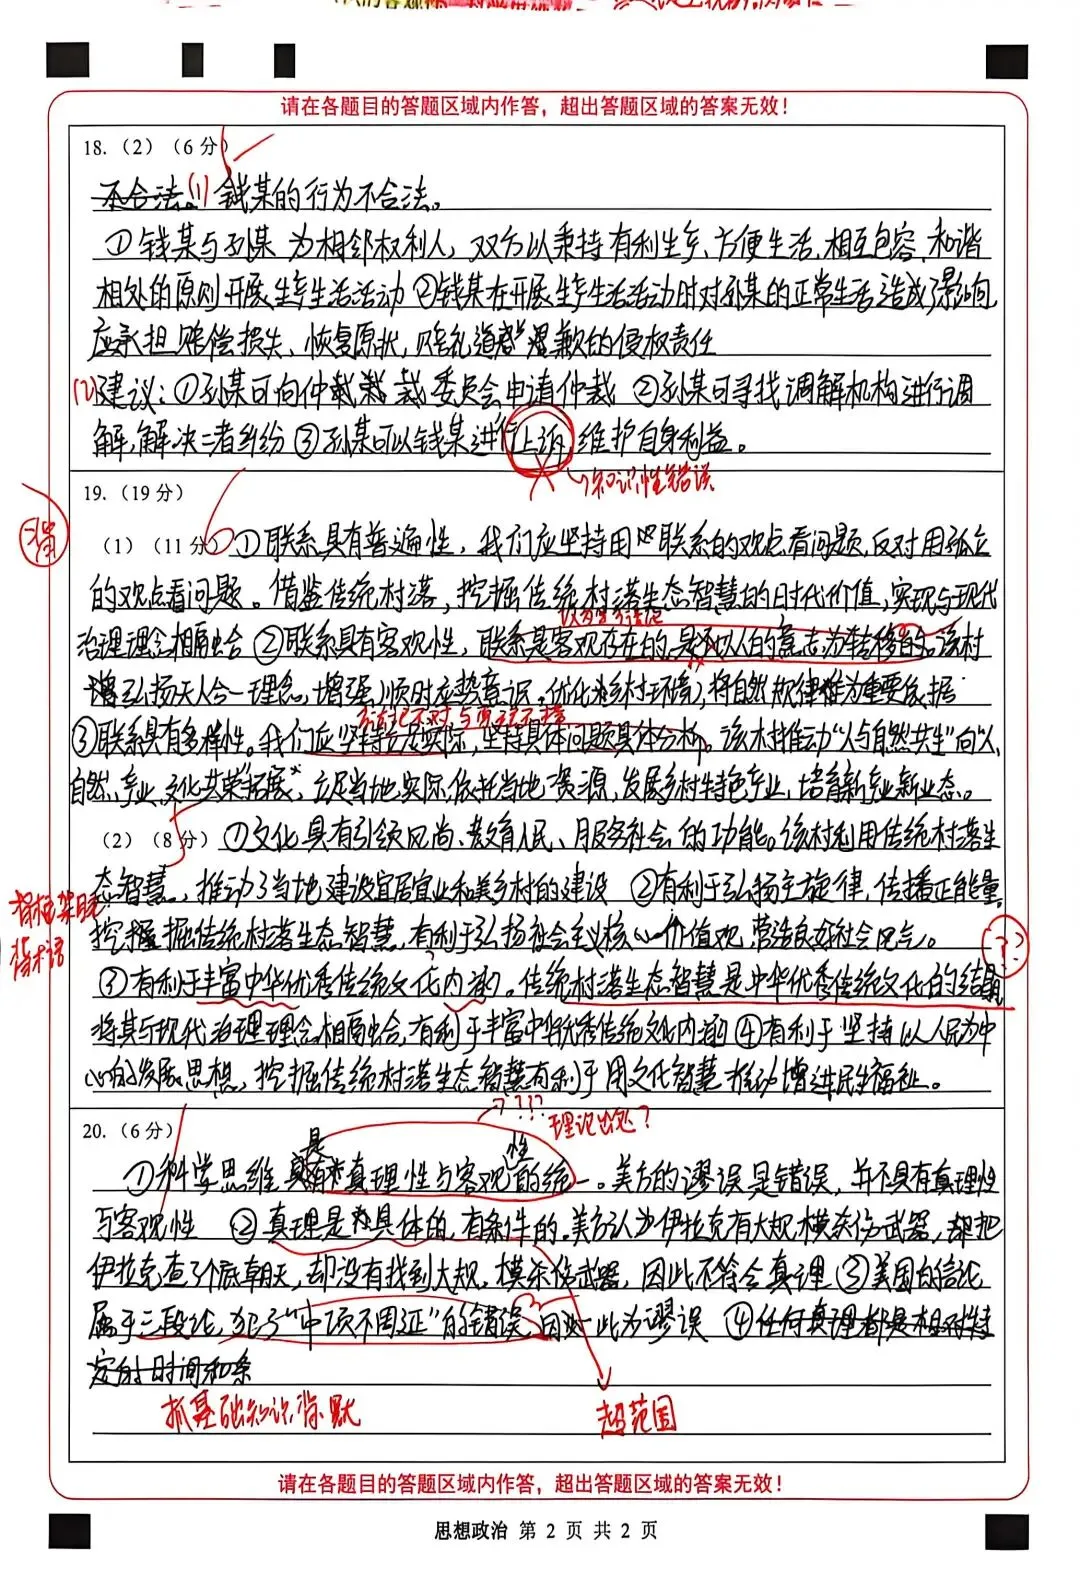 请在各题目的答题区域内作答，超出答题区域的答案无效！
18.（2）（6 分）
不合法。(1) 钱某的行为不合法。
①钱某与孙某为相邻权利人，双方以秉持有利生产、方便生活、相互包容、和谐
相处的原则开展生产生活活动②钱某在开展生产生活活动时对孙某的正常生活造成了影响
应承担赔偿损失、恢复原状，赔礼道歉的侵权责任
(2)建议：①孙某可向仲裁委员会申请仲裁 ②孙某可寻找调解机构进行调
解，解决二者纠纷③孙某可以钱某进行上诉，维护自身利益。
知识性错误
19.（19 分）
背
（1）（11 分）①联系具有普遍性，我们应坚持用联系的观点看问题，反对用孤立
的观点看问题。借鉴传统村落，挖掘传统村落生态智慧的时代价值，实现与现代
治理理念相融合②联系具有客观性，联系是客观存在的，是不以人的意志为转移的。该村
弘扬天人合一理念，增强顺时应势意识，优化乡村环境，将自然规律作为重要依据
方法论不对与原理不搭
③联系具有多样性。我们应坚持一切从实际，坚持具体问题具体分析。该村推动“人与自然共生”向“人、
自然、产业、文化共荣”拓展，立足当地实际，依托当地资源，发展乡村特色产业，培育新产业新业态。
（2）（8 分）①文化具有引领风尚、教育人民、服务社会的功能。该村利用传统村落生
态智慧，推动了当地建设宜居宜业和美乡村的建设 ②有利于弘扬主旋律，传播正能量，
挖掘传统村落生态智慧，有利于弘扬社会主义核心价值观，营造良好社会风气。
？
③有利于丰富中华优秀传统文化内涵。传统村落生态智慧是中华优秀传统文化的结晶
将其与现代治理理念相融合，有利于丰富中华优秀传统文化内涵④有利于坚持以人民为中
心的发展思想，挖掘传统村落生态智慧有利于用文化智慧推动增进民生福祉。
???
理论出处？
20.（6 分）
①科学思维是真理性与客观性的统一。美方的谬误是错误，并不具有真理性
与客观性 ②真理是具体的，有条件的。美方认为伊拉克有大规模杀伤武器，却把
伊拉克查了个底朝天，却没有找到大规模杀伤武器，因此不符合真理③美国的言论
属于三段论，犯了“中项不周延”的错误，因此为谬误 ④任何真理都是相对特
定的时间和条
抓基础知识背默
超范围
请在各题目的答题区域内作答，超出答题区域的答案无效！
思想政治 第 2 页 共 2 页